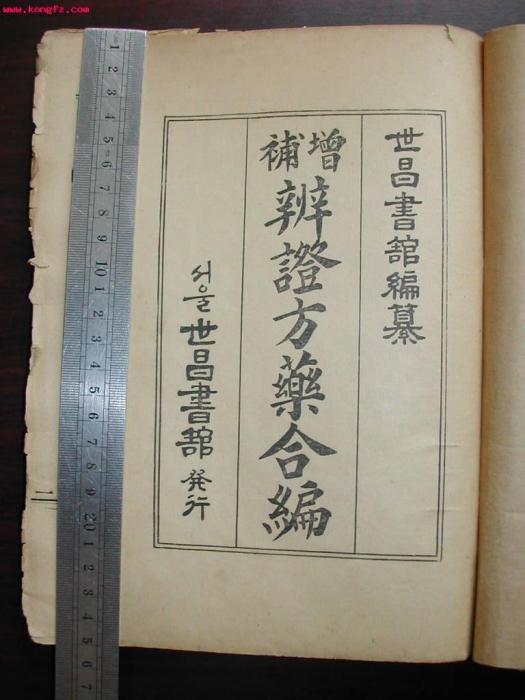 www.kongfz.com
世昌書舘編纂
增補
辨證方藥合編
서울 世昌書舘 発行
1 2 3 4 5 6 7 8 9 10 1 2 3 4 5 6 7 8 9 20 1 2 3 4 5 6 7